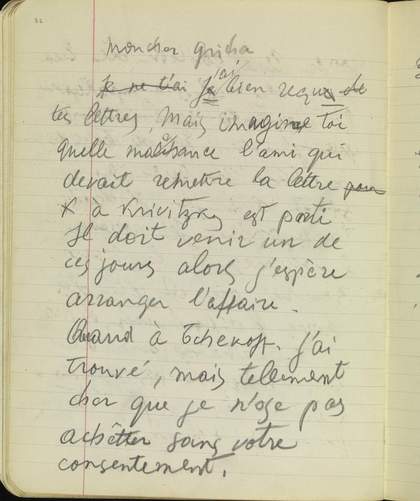 32
Mon cher Gricha
Je ne t'ai J'ai bien reçu de
tes lettres, mais imagine toi
quelle malchance l'ami qui
devait remettre la lettre pour
X à Krivitzky est parti
Il doit venir un de
ces jours alors j'espère
arranger l'affaire.
Quand à Tchekoff. j'ai
trouvé, mais tellement
cher que je n'ose pas
achêtter sans votre
consentement.